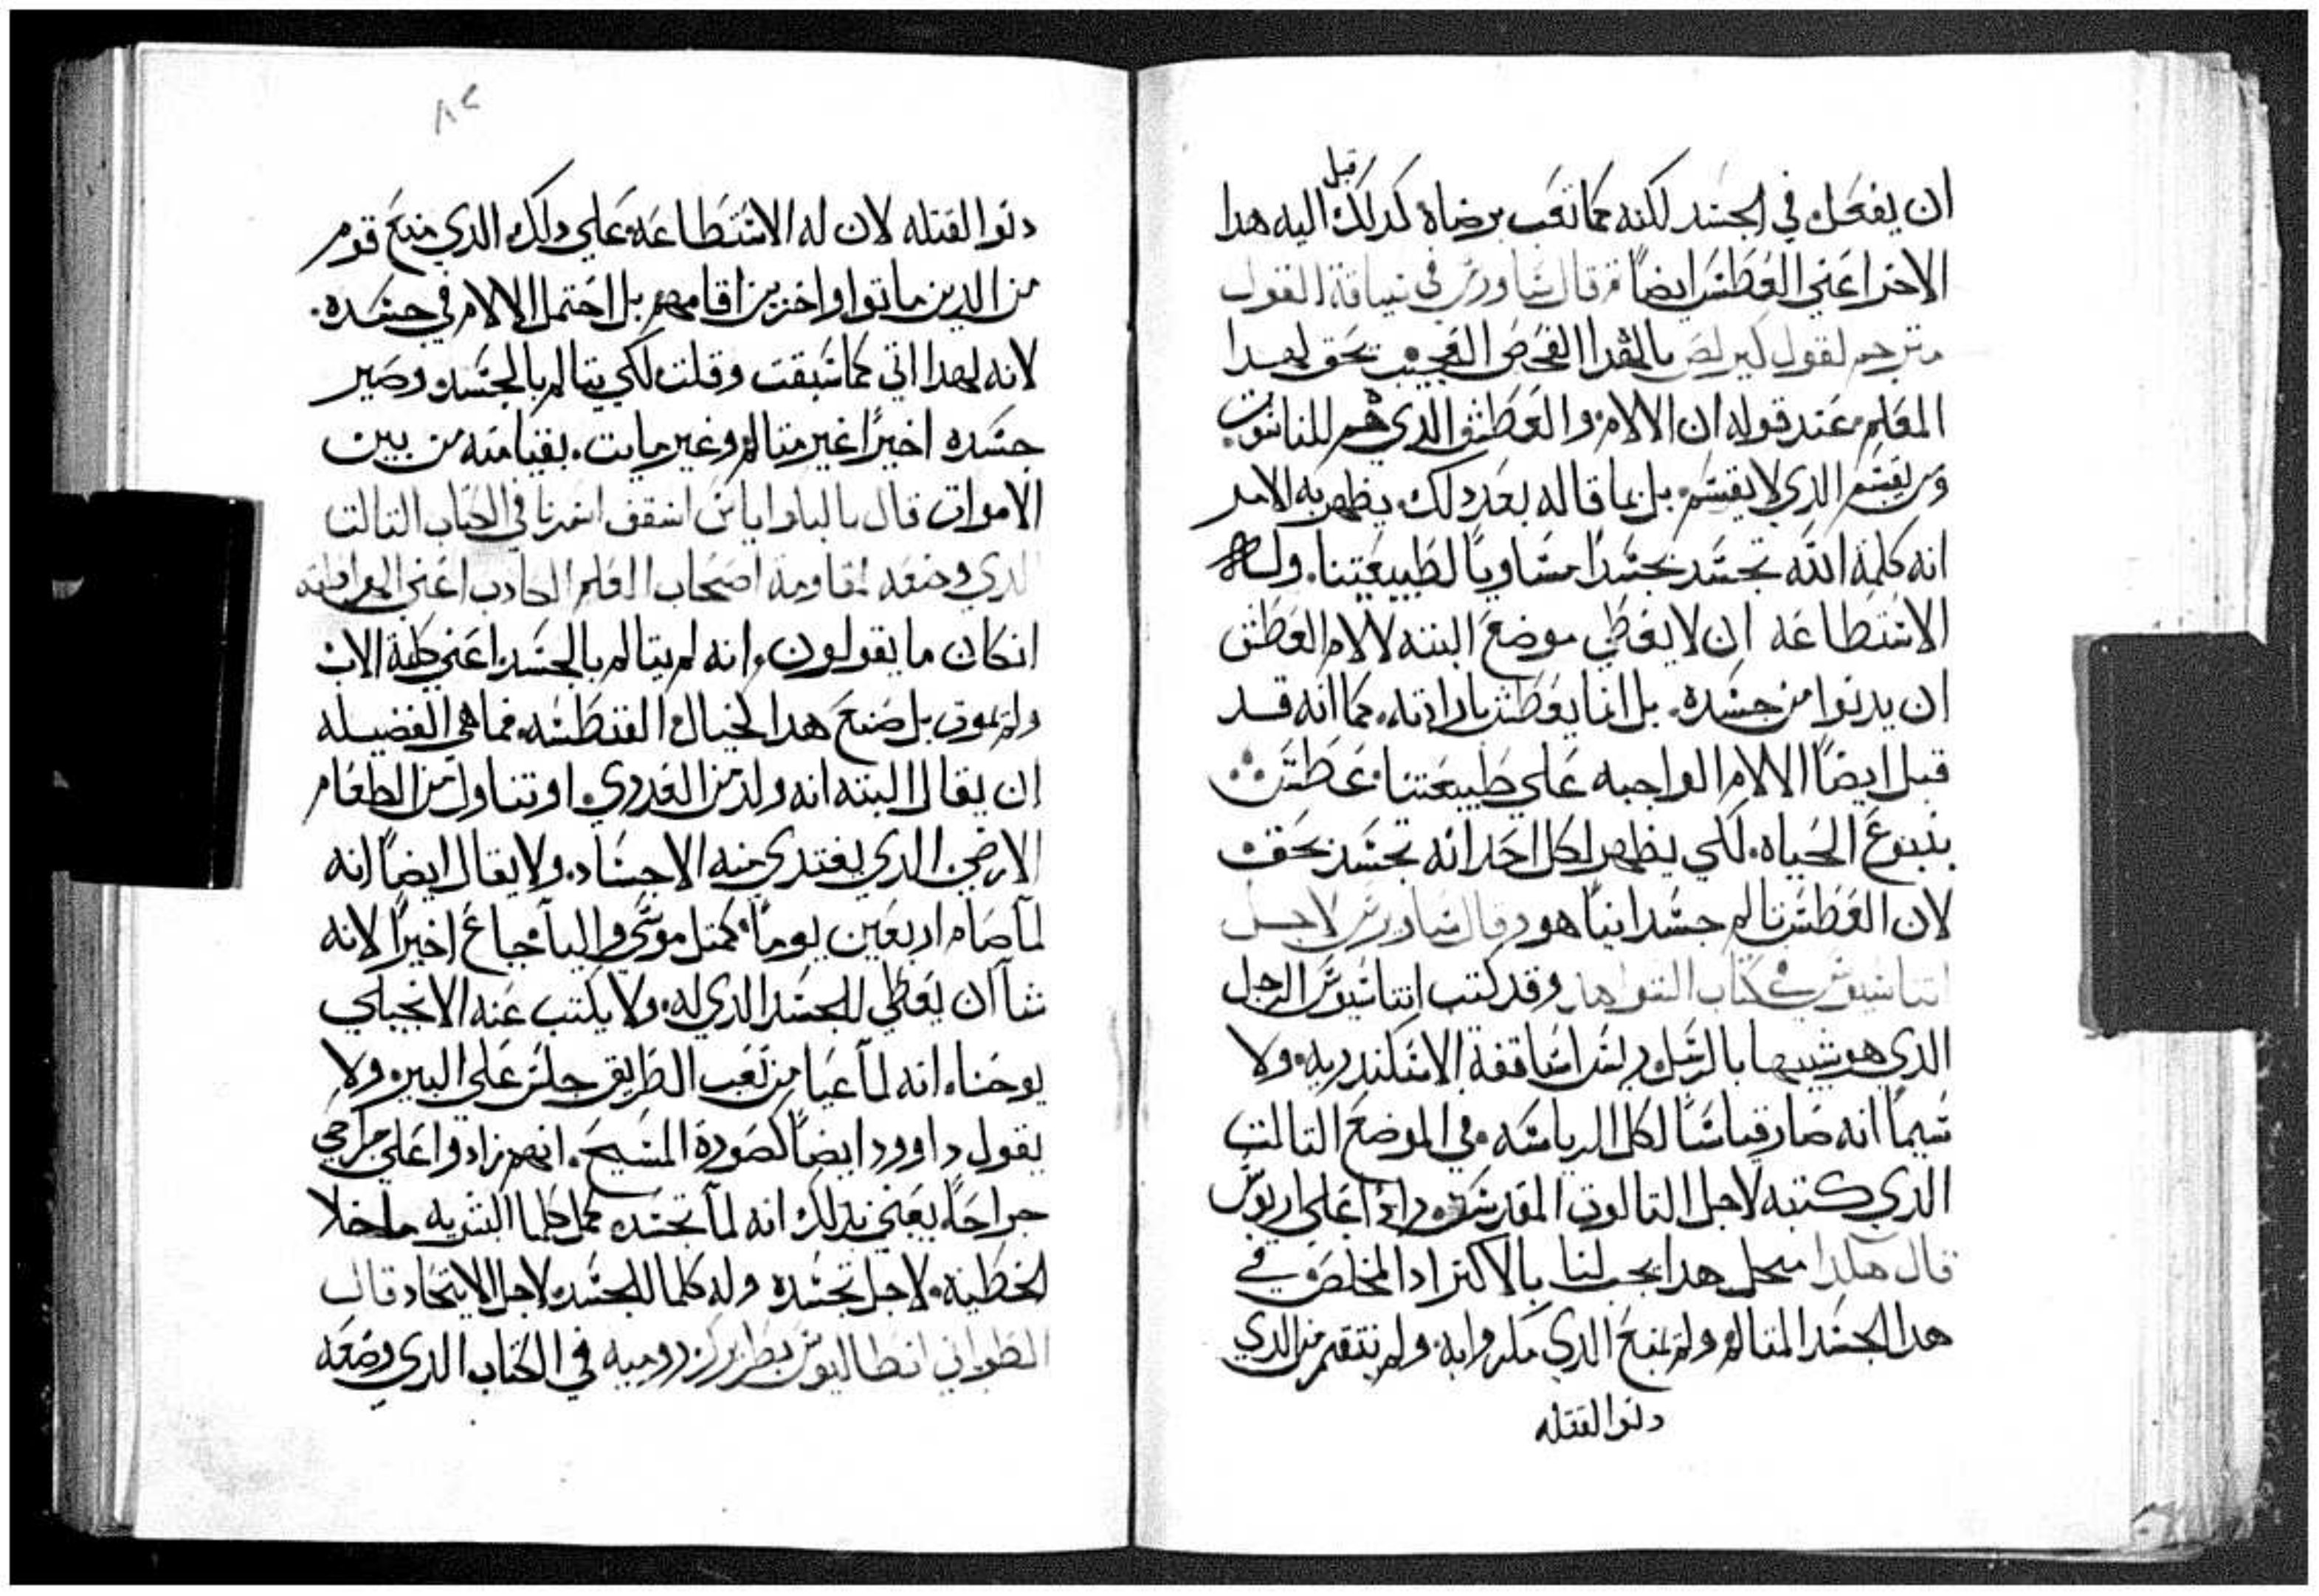 ان يفعل في الجسد لكنه كما تعب برضاه كدلك قبل اليه هدا
الاخر اعني العطش ايضاً ثم قال ساورس في سياقة القول
المعلم عند قوله ان الالام والعطش الدي هم للناسوت
ومن يقسم الدي لا يقسم بل بما قاله بعد دلك يظهر به الامر
انه كلمة الله تجسد بجسداً مساوياً لطبيعتنا وله
الاستطاعه ان لا يعطي موضع البته لالام العطش
ان يدنوا من جسده بل انما يعطش بارادته كما انه قد
قبل ايضاً الالام الواجبه علي طبيعتنا عطشت
ينبوع الحياه لكي يظهر لكل احد انه تجسد بحق
لان العطش تالم جسدانياً هو وقال ساورس لاجل
اتناسيوس في كتاب وقد كتب اتناسيوس الرجل
الدي هو شبيها بالرسل ريس اساقفة الاسكندريه ولا
سيما انه صار قياساً لكل الرياسه في الموضع التالت
الدي كتبه لاجل التالوت المقدس راداً علي اريوس
قال هكدا من اجل هدا يجب لنا بالاكتر ادا المخلص في
هدا الجسد المتالم ولم يمنع الدي مكروا به ولم ينتقم من الدي
دنوا لقتله
٨٢
دنوا لقتله لان له الاستطاعه علي دلك الدي منع قوم
من الدين ماتوا واخرين اقامهم بل احتمل الالام في جسده
لانه لهدا اتي كما سبقت وقلت لكي يتالم بالجسد وصير
جسده اخيراً غير متالم وغير مايت بقيامته من بين
الاموات قال اسقف في الكتاب التالت
الدي وضعه لمقاومة اصحاب العلم الكادب اعني الهراطقه
انكان ما يقولون انه لم يتالم بالجسد اعني كلمة الاب
ولم يموت بل صنع هدا لخيال الفنطسه فما هي الفضيله
ان يقال البته انه ولد من العدري او تناول من الطعام
الارضي الدي يغتدي منه الاجساد ولا يقال ايضاً انه
لما صام اربعين يوماً كمتل موسي واليا جاع اخيراً لانه
شا ان يعطي للجسد الدي له ولا يكتب عنه الانجيلي
يوحنا انه لما عيا من تعب الطريق جلس علي البير ولا
يقول داوود ايضاً كصورة المسيح انهم زادوا علي جراحي
جراحاً يعني بدلك انه لما تجسد كمل كلما للبشريه ما خلا
الخطيه لاجل تجسده وله كلما للجسد لاجل الاتحاد قال
الطوباني بطريرك روميه في الكتاب الدي وضعه